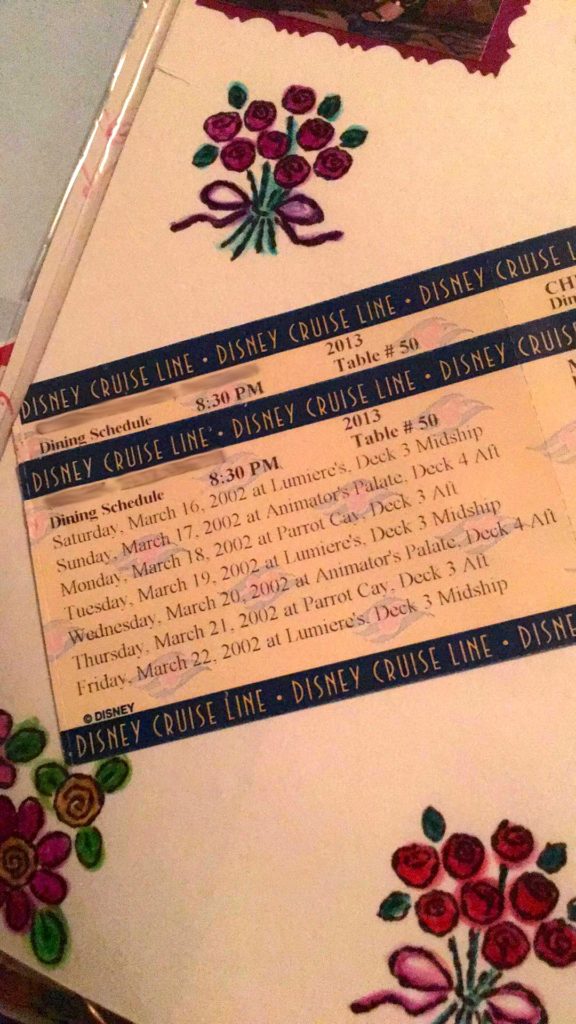 DISNEY CRUISE LINE • DISNEY CRUISE LINE • DISNEY CRUISE L
2013
8:30 PM Table # 50
Dining Schedule
DISNEY CRUISE LINE • DISNEY CRUISE LINE • DISNEY CRUIS
2013
8:30 PM Table # 50
Dining Schedule
Saturday, March 16, 2002 at Lumiere's, Deck 3 Midship
Sunday, March 17, 2002 at Animator's Palate, Deck 4 Aft
Monday, March 18, 2002 at Parrot Cay, Deck 3 Aft
Tuesday, March 19, 2002 at Lumiere's, Deck 3 Midship
Wednesday, March 20, 2002 at Animator's Palate, Deck 4 Aft
Thursday, March 21, 2002 at Parrot Cay, Deck 3 Aft
Friday, March 22, 2002 at Lumiere's, Deck 3 Midship
© DISNEY
DISNEY CRUISE LINE • DISNEY CRUISE LINE • DISNE